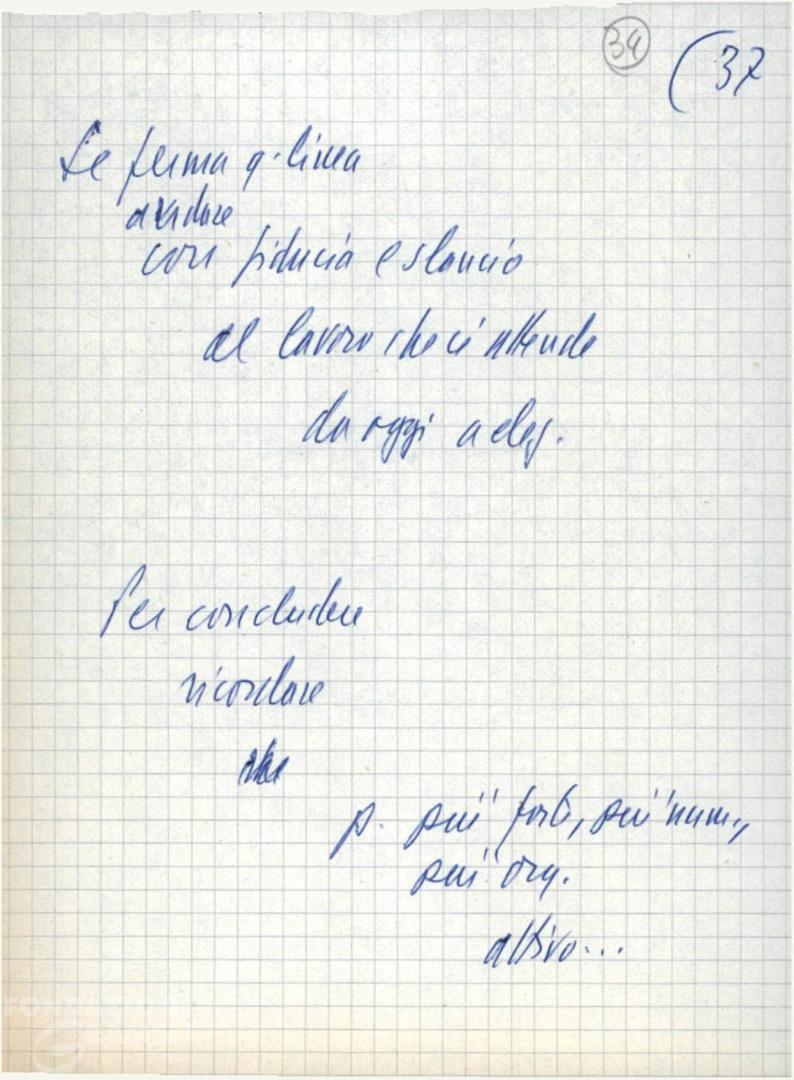 34
(37
Se ferma q. linea
andare
con fiducia e slancio
al lavoro che ci attende
da oggi a elez.
Per concludere
ricordare
che
p. più forte, più num.,
più org.
attivo...